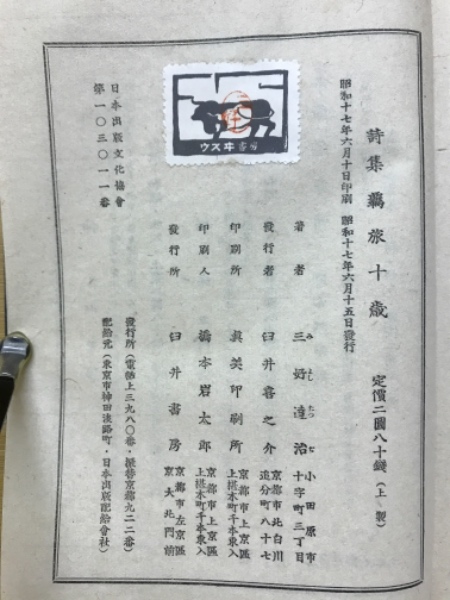 詩集羇旅十歳　定價二圓八十錢（上製）
昭和十七年六月十日印刷　昭和十七年六月十五日發行
ウスヰ書房
著者　三好達治　小田原市十字町三丁目
み　よし　たつ　ぢ
發行者　臼井喜之介　京都市北白川追分町八十七
印刷所　眞美印刷所　京都市上京區上長者町千本東入
印刷人　橋本岩太郎　京都市上京區上長者町千本東入
發行所　臼井書房　京都市左京區京大北門前
日本出版文化協會
第一〇三〇一一番
發行所（電話上三九八〇番・振替京都九二二番）
配給元（東京市神田淡路町・日本出版配給會社）